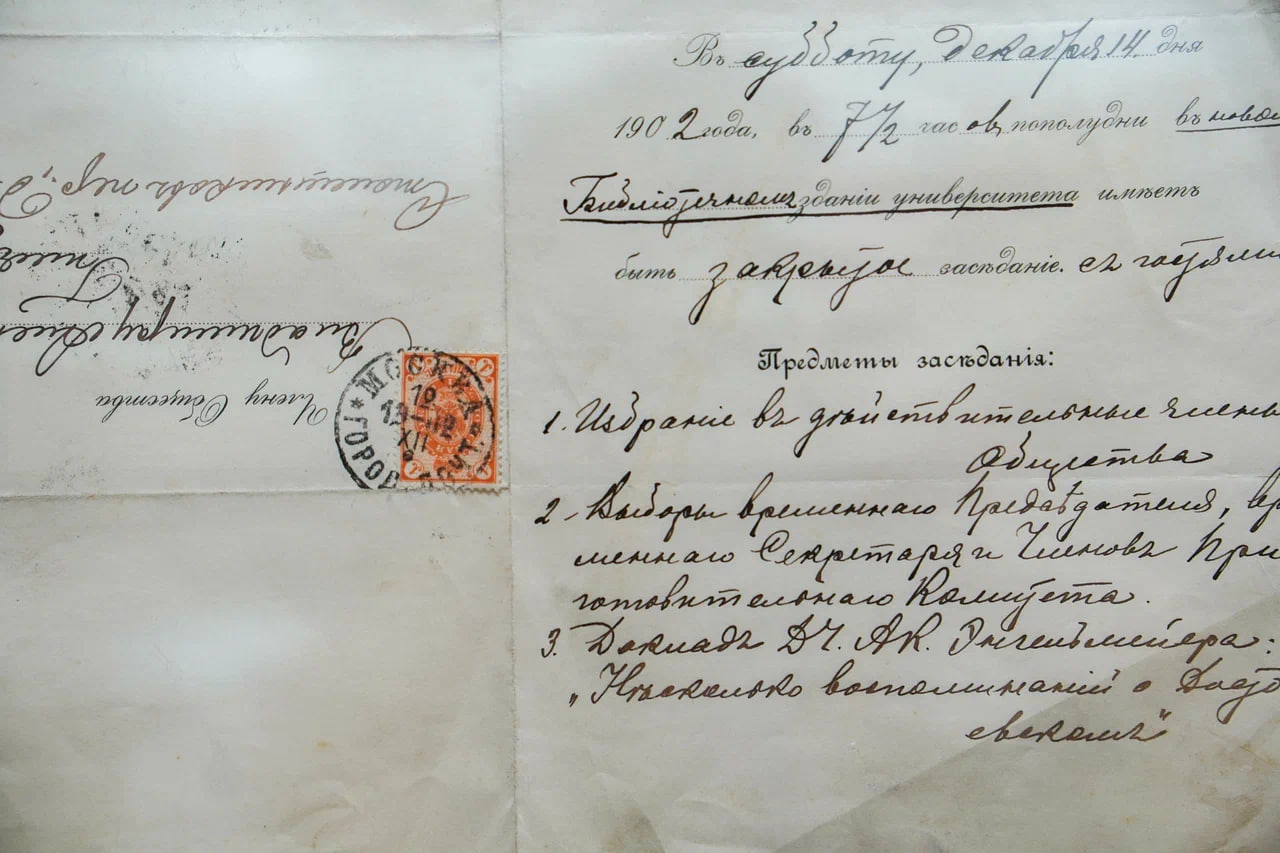 Въ субботу, декабря 14 дня
1902 года, въ 7 1/2 часовъ пополудни въ новом
Библіотечномъ зданіи университета имѣетъ
быть закрытое засѣданіе. съ гостями
Предметы засѣданія:
1. Избраніе въ дѣйствительные члены
Общества
2. Выборы временнаго Предсѣдателя, вре
меннаго Секретаря и Членовъ При
готовительнаго Комитета.
3. Докладъ ДЧ. А.К. Энгельмейера:
„Нѣсколько воспоминаній о Досто
евскомъ"
Члену Общества
Владиміру
пер.,
МОСКВА
ГОРОД. ПОЧТ.
XII